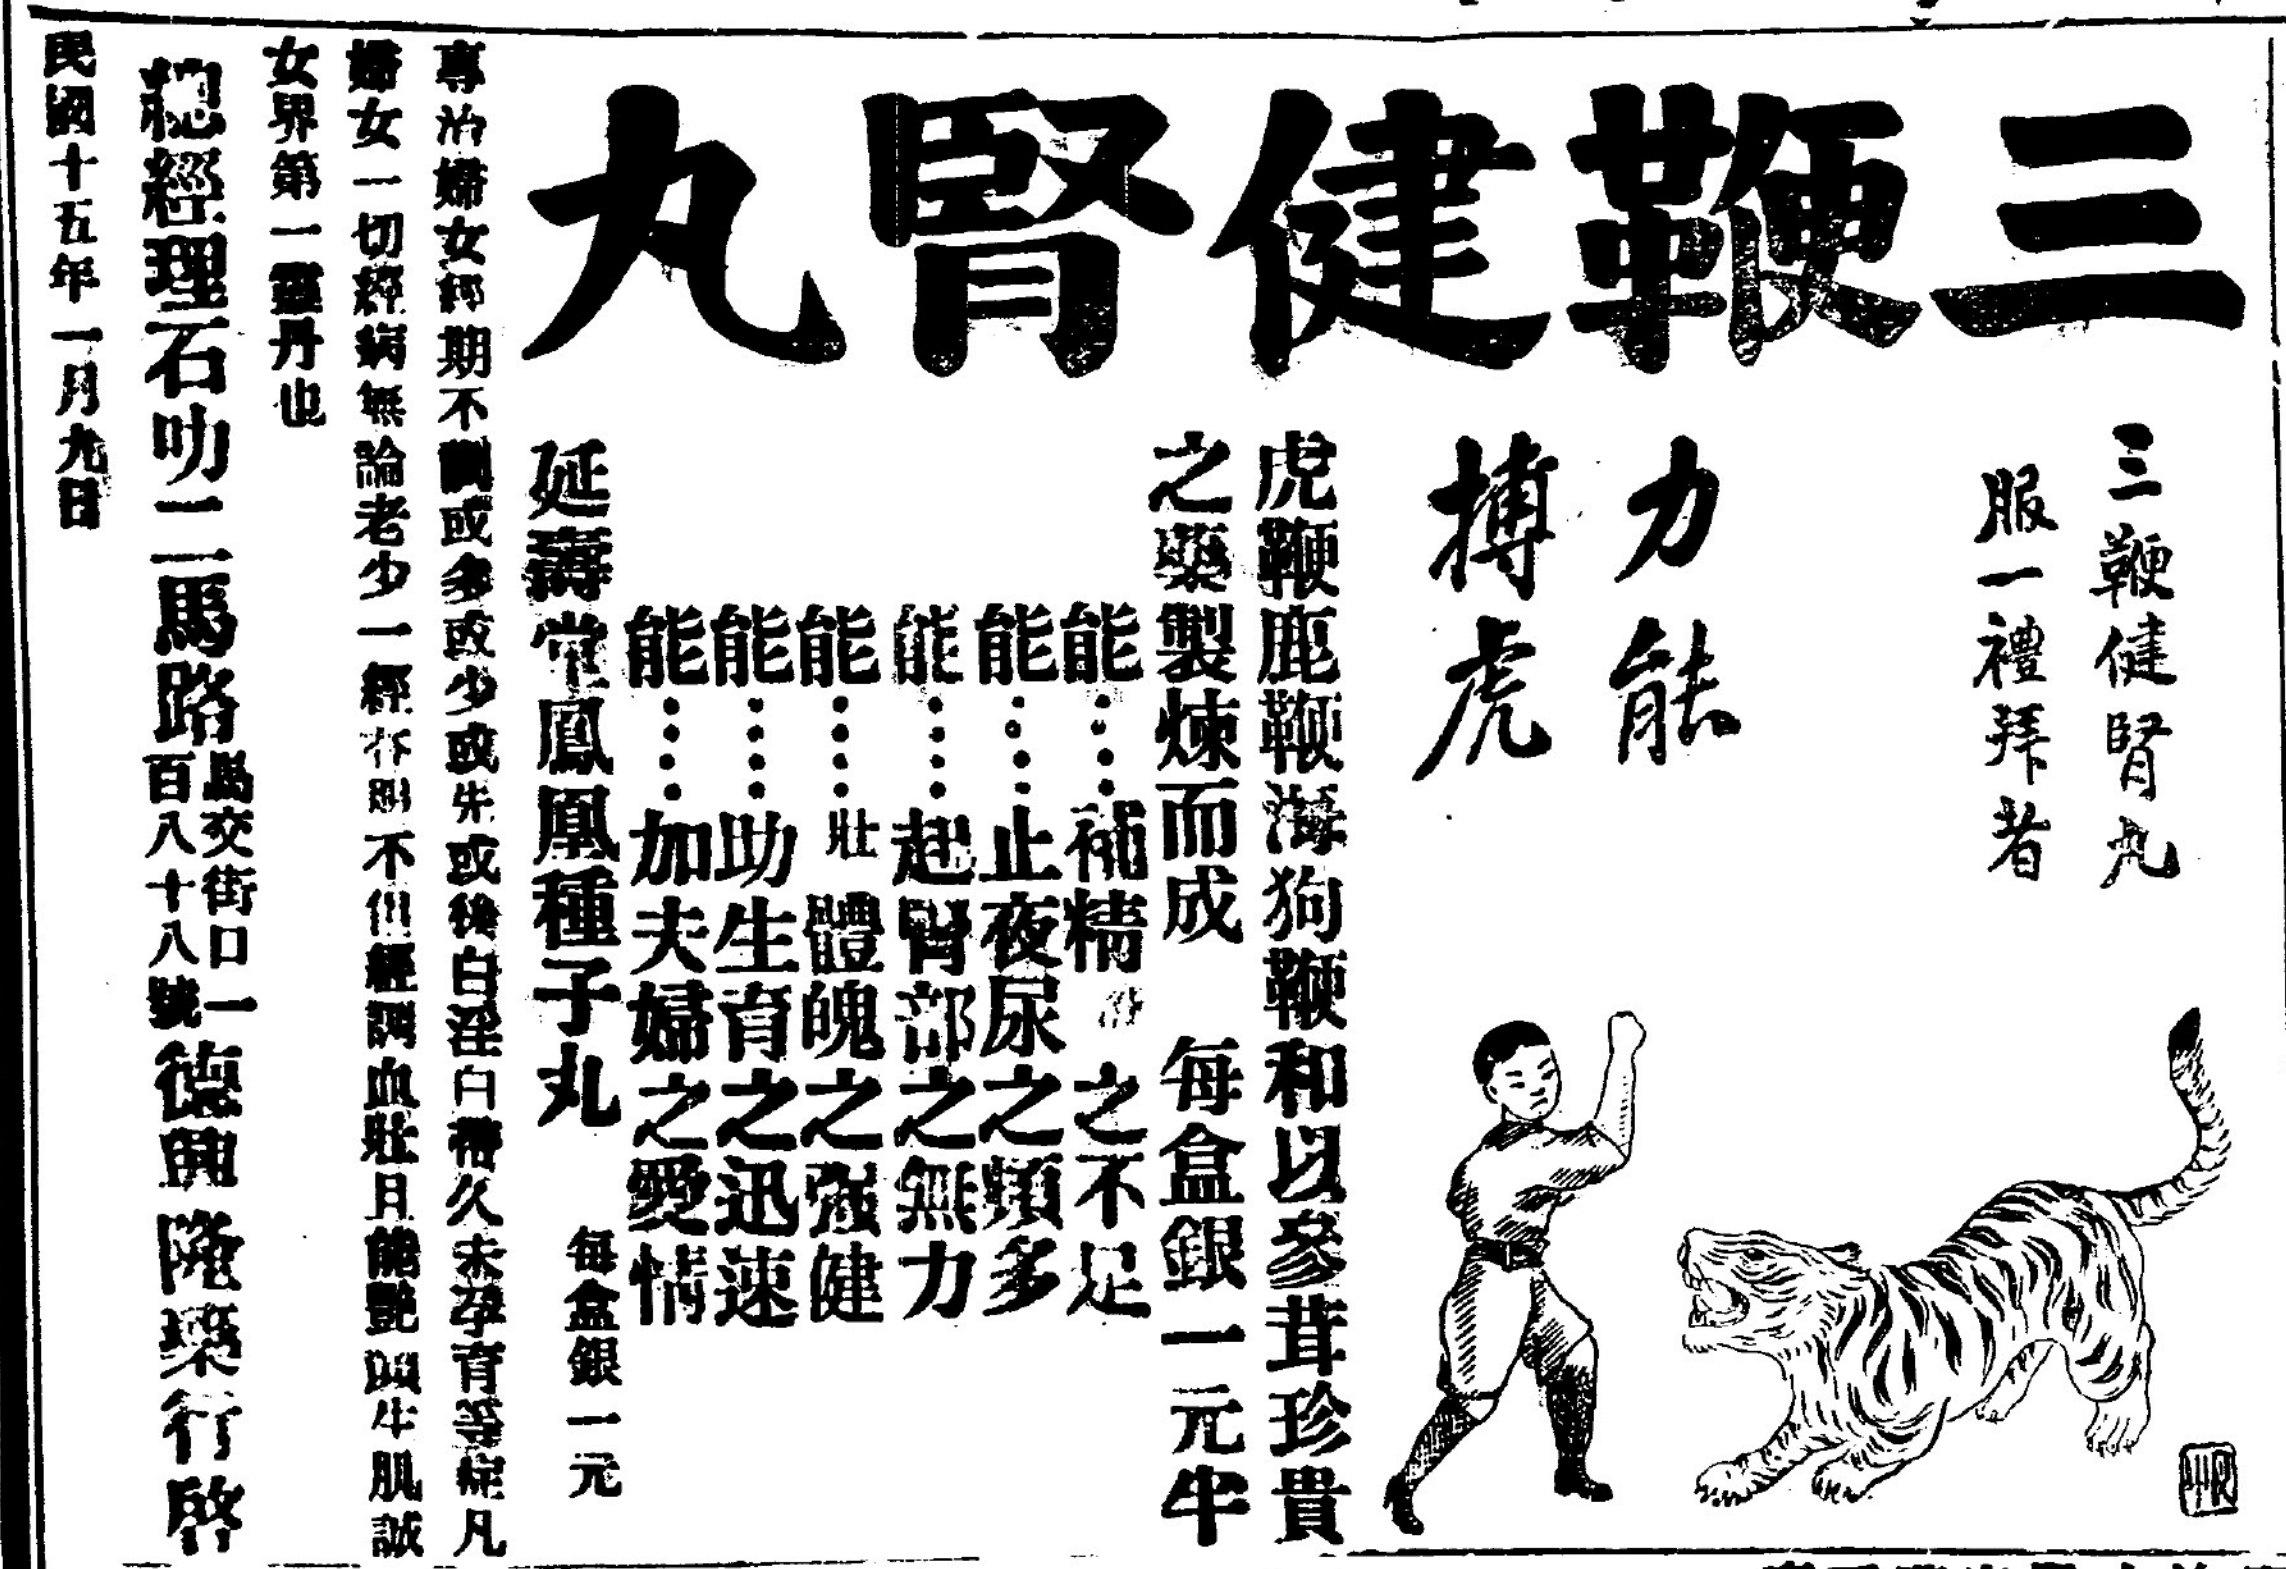 三鞭健腎丸
三鞭健腎丸
服一禮拜者
力能
搏虎
虎鞭鹿鞭海狗鞭和以參茸珍貴
之藥製煉而成 每盒銀一元半
能⋯⋯補精 之不足
能⋯⋯止夜尿之頻多
能⋯⋯起腎部之無力
能⋯⋯壯體魄之强健
能⋯⋯助生育之迅速
能⋯⋯加夫婦之愛情
延壽堂鳳凰種子丸 每盒銀一元
專治婦女經期不調或多或少或先或後白淫白帶久未孕育等症凡
婦女一切經病無論老少一經 不但經調血壯且能艷 生肌誠
女界第一靈丹也
總經理石叻二馬路馬交街口一百八十八號德興隆藥行啓
民國十五年一月九日